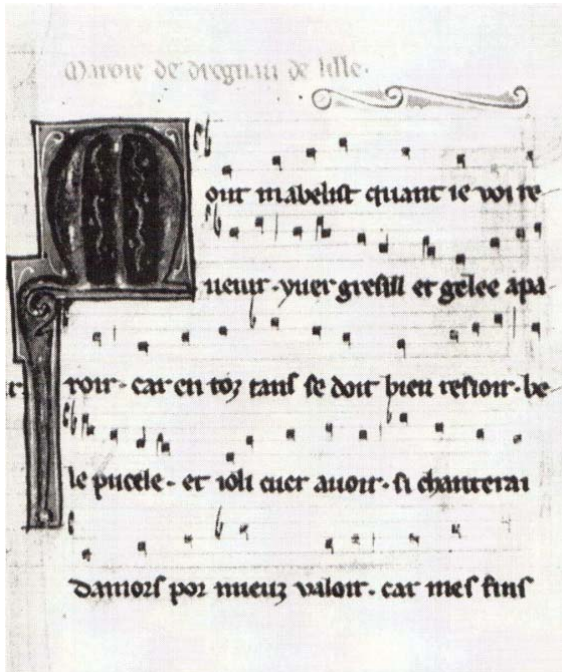 Maroie de dregnau de lille.
Mout mabelist quant ie voi re
uenir · yuer gresill et gelee apa
roir · car en toz tans se doit bien resioir · be
le pucele · et ioli cuer auoir · si chanterai
damors por mieuz ualoir · car mes fins